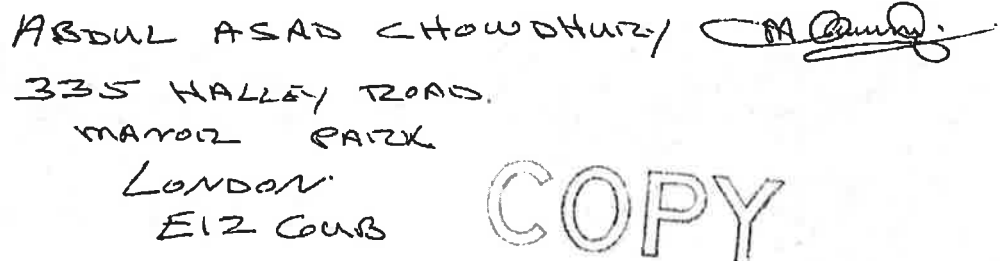 ABDUL ASAD CHOWDHURY
335 HALLEY ROAD.
MANOR PARK
LONDON.
E12 6UB
COPY